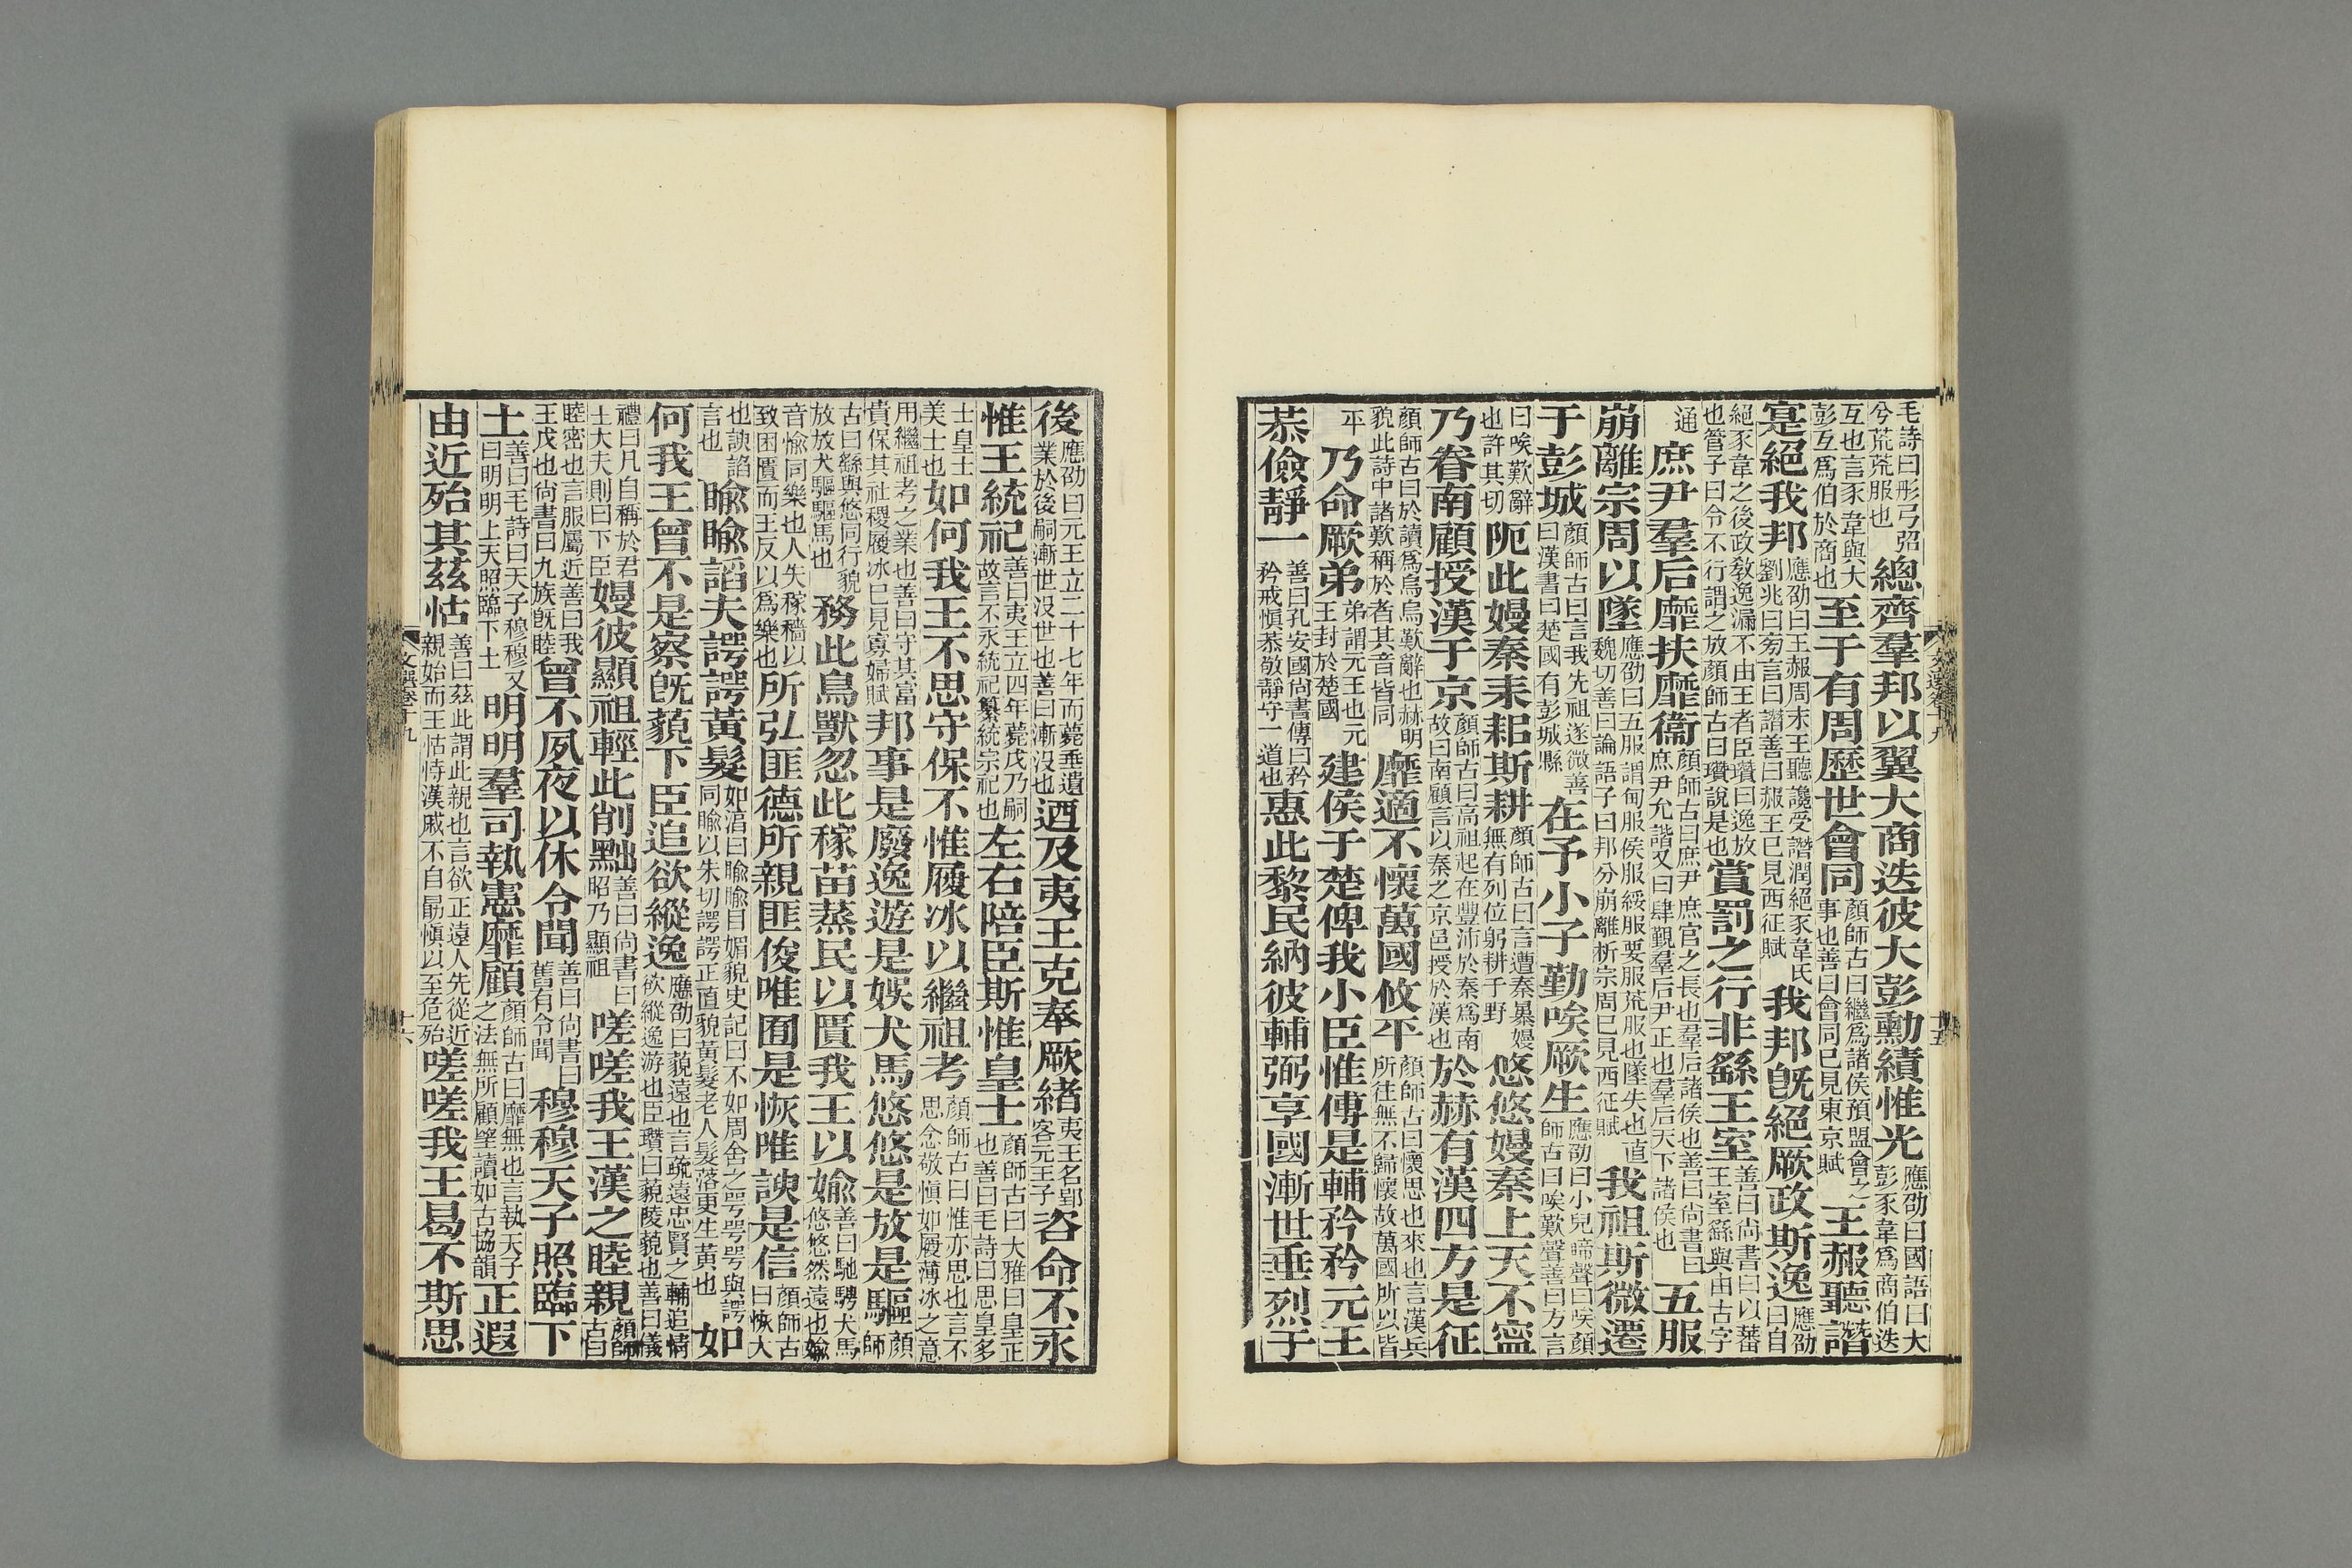 毛詩曰彤弓弨兮荒荒服也總齊羣邦以翼大商迭彼大彭勳績惟光應劭曰國語曰大彭豕韋爲商伯迭
互也言豕韋與大彭互爲伯於商也至于有周歷世會同顏師古曰繼爲諸侯預盟會之事也善曰會同已見東京賦王赧聽譖
寔絕我邦應劭曰王赧周末王聽讒受譖潤絕豕韋氏劉兆曰旁言曰譖善曰赧王已見西征賦我邦旣絕厥政斯逸應劭曰自
絕豕韋之後政敎逸漏不由王者臣瓚曰逸放也管子曰令不行謂之放顏師古曰瓚說是也賞罰之行非繇王室善曰尚書曰以蕃王室繇與由古字
通庶尹羣后靡扶靡衞顏師古曰庶尹庶官之長也羣后諸侯也善曰尚書曰庶尹允諧又曰肆覲羣后尹正也羣后天下諸侯也五服
崩離宗周以墜應劭曰五服謂甸服侯服綏服要服荒服也墜失也直魏切善曰論語子曰邦分崩離析宗周已見西征賦我祖斯微遷
于彭城顏師古曰言我先祖遂微善曰漢書曰楚國有彭城縣在予小子勤唉厥生應劭曰小兒啼聲曰唉顏師古曰唉歎聲善曰方言
曰唉歎辭也許其切阨此嫚秦耒耜斯耕顏師古曰言遭秦暴嫚無有列位躬耕于野悠悠嫚秦上天不寧
乃眷南顧授漢于京顏師古曰高祖起在豐沛於秦爲南故曰南顧言以秦之京邑授於漢也於赫有漢四方是征
顏師古曰於讀爲烏烏歎辭也赫明貌此詩中諸歎稱於者其音皆同靡適不懷萬國攸平顏師古曰懷思也來也言漢兵所往無不歸懷故萬國所以皆
平乃命厥弟弟謂元王也元王封於楚國建侯于楚俾我小臣惟傅是輔矜矜元王
恭儉靜一善曰孔安國尚書傳曰矜矜戒愼恭敬靜守一道也惠此黎民納彼輔弼享國漸世垂烈于
文選卷十九
十五
後應劭曰元王立二十七年而薨垂遺業於後嗣漸世沒世也善曰漸沒也迺及夷王克奉厥緒夷王名郢客元王子咨命不永
惟王統祀善曰夷王立四年薨戊乃嗣故言不永統祀纂統宗祀也左右陪臣斯惟皇士顏師古曰大雅曰皇正也善曰毛詩曰思皇多
士皇士美士也如何我王不思守保不惟履冰以繼祖考顏師古曰惟亦思也言不思念敬愼如履薄冰之意
用繼祖考之業也善曰守其富貴保其社稷履冰已見寡婦賦邦事是廢逸遊是娛犬馬悠悠是放是驅顏師
古曰繇與悠同行貌放放犬驅驅馬也務此鳥獸忽此稼苗蒸民以匱我王以媮善曰馳騁犬馬悠悠然遠也媮
音愉同樂也人失稼穡以致困匱而王反以爲樂也所弘匪德所親匪俊唯囿是恢唯諛是信顏師古曰恢大
也諛諂言也睮睮諂夫諤諤黃髮如淳曰睮睮目媚貌史記曰不如周舍之咢咢咢與諤同睮以朱切諤諤正直貌黃髮老人髮落更生黃也如
何我王曾不是察旣藐下臣追欲縱逸應劭曰藐遠也言疏遠忠賢之輔追情欲縱逸游也臣瓚曰藐陵藐也善曰儀
禮曰凡自稱於君士大夫則曰下臣嫚彼顯祖輕此削黜善曰尚書曰昭乃顯祖嗟嗟我王漢之睦親顏師古曰
睦密也言服屬近善曰我王戊也尙書曰九族旣睦曾不夙夜以休令聞善曰尚書曰舊有令聞穆穆天子照臨下
土善曰毛詩曰天子穆穆又曰明明上天照臨下土明明羣司執憲靡顧顏師古曰靡無也言執天子之法無所顧望讀如古協韻正遐
由近殆其茲怙善曰茲此謂此親也言欲正遠人先從近親始而王怙恃漢戚不自勗愼以至危殆嗟嗟我王曷不斯思
文選卷十九
十六